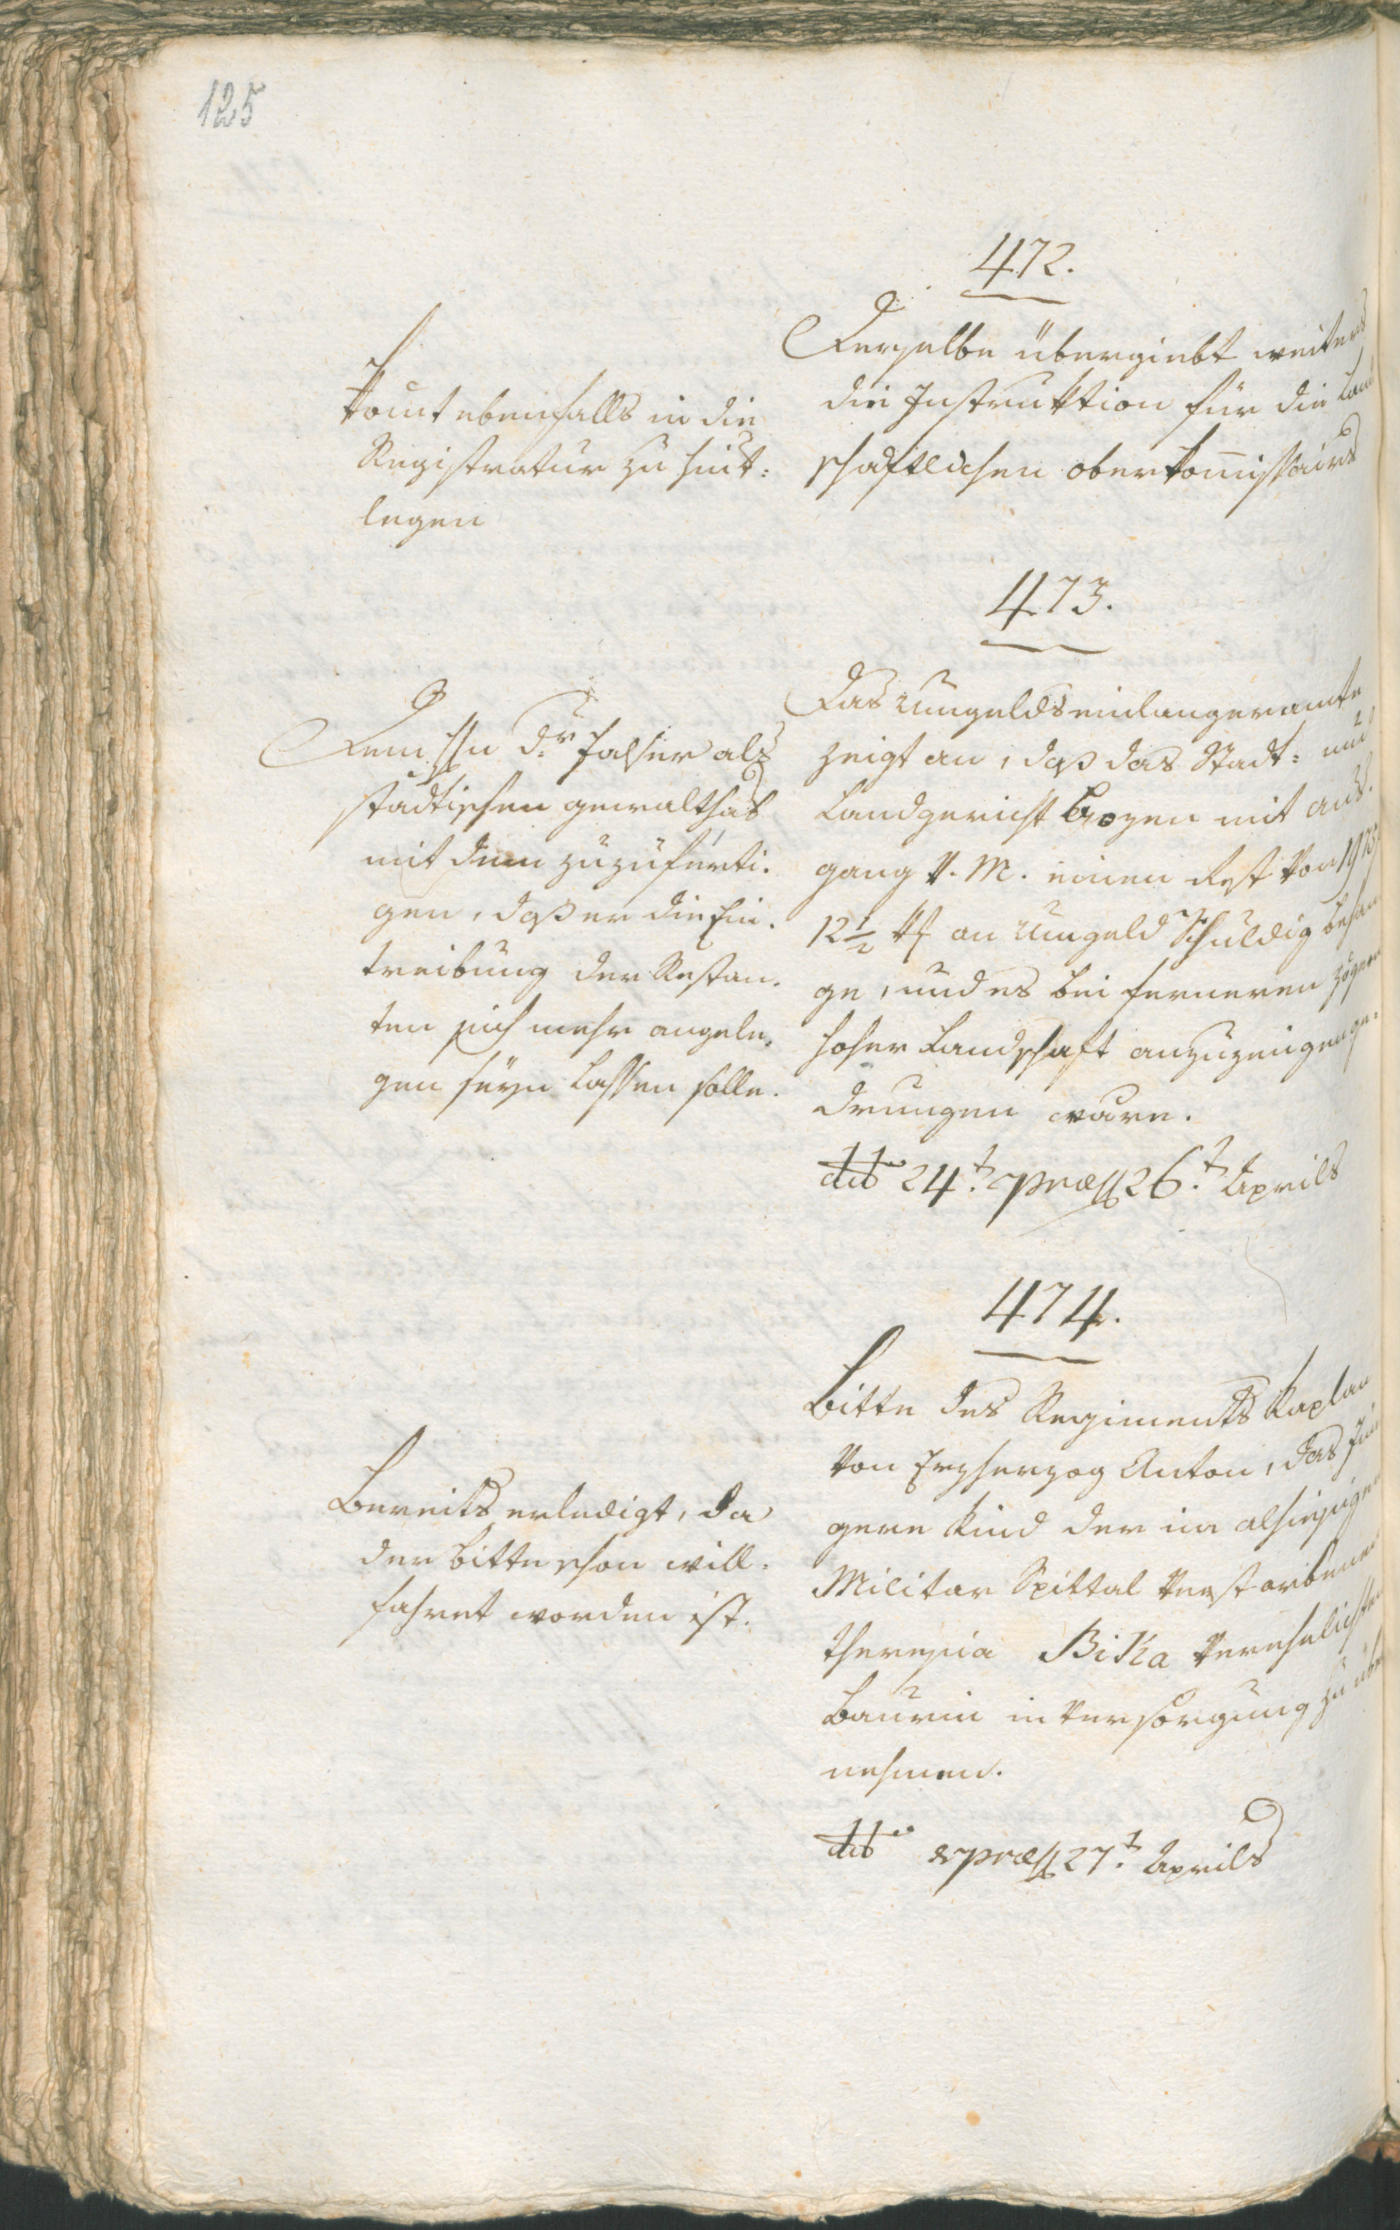 125
472.
Derselbe übergiebt weiters
die Instruktion für die Land
schaftlichen oberkom̅issairs
Kom̅t ebenfalls in die
Registratur zu hint:
legen
473.
Das Umgelds einlangeramte
zeigt an, daß das Stadt: und
Landgericht Bozen mit aus.
gang v. M. einen Rest von
12½ xr an Umgeld Schuldig behan
ge, und es bei ferneren
hoher Landschaft anzuzeigen ge.
drungen wäre.
dto 24.t præs 26.t Aprils
Dem Hn Dr. als
städtischen gewalthab
mit dem zuzuferti.
gen, daß er die Ein.
treibung der Restan.
ten sich mehr angele.
gen seyn lassen solle.
474.
Bitte des Regiments Kaplan
von Erzherzog Anton, das Jün
gere Kind der im alhiesigen
Militar Spittal verstorbenen
Theresia Bika verehelichten
Baurin in Versorgung zu über
nehmen.
dto & præs 27.t Aprils
Bereits erledigt, da
der Bitte schon will.
fahret worden ist.